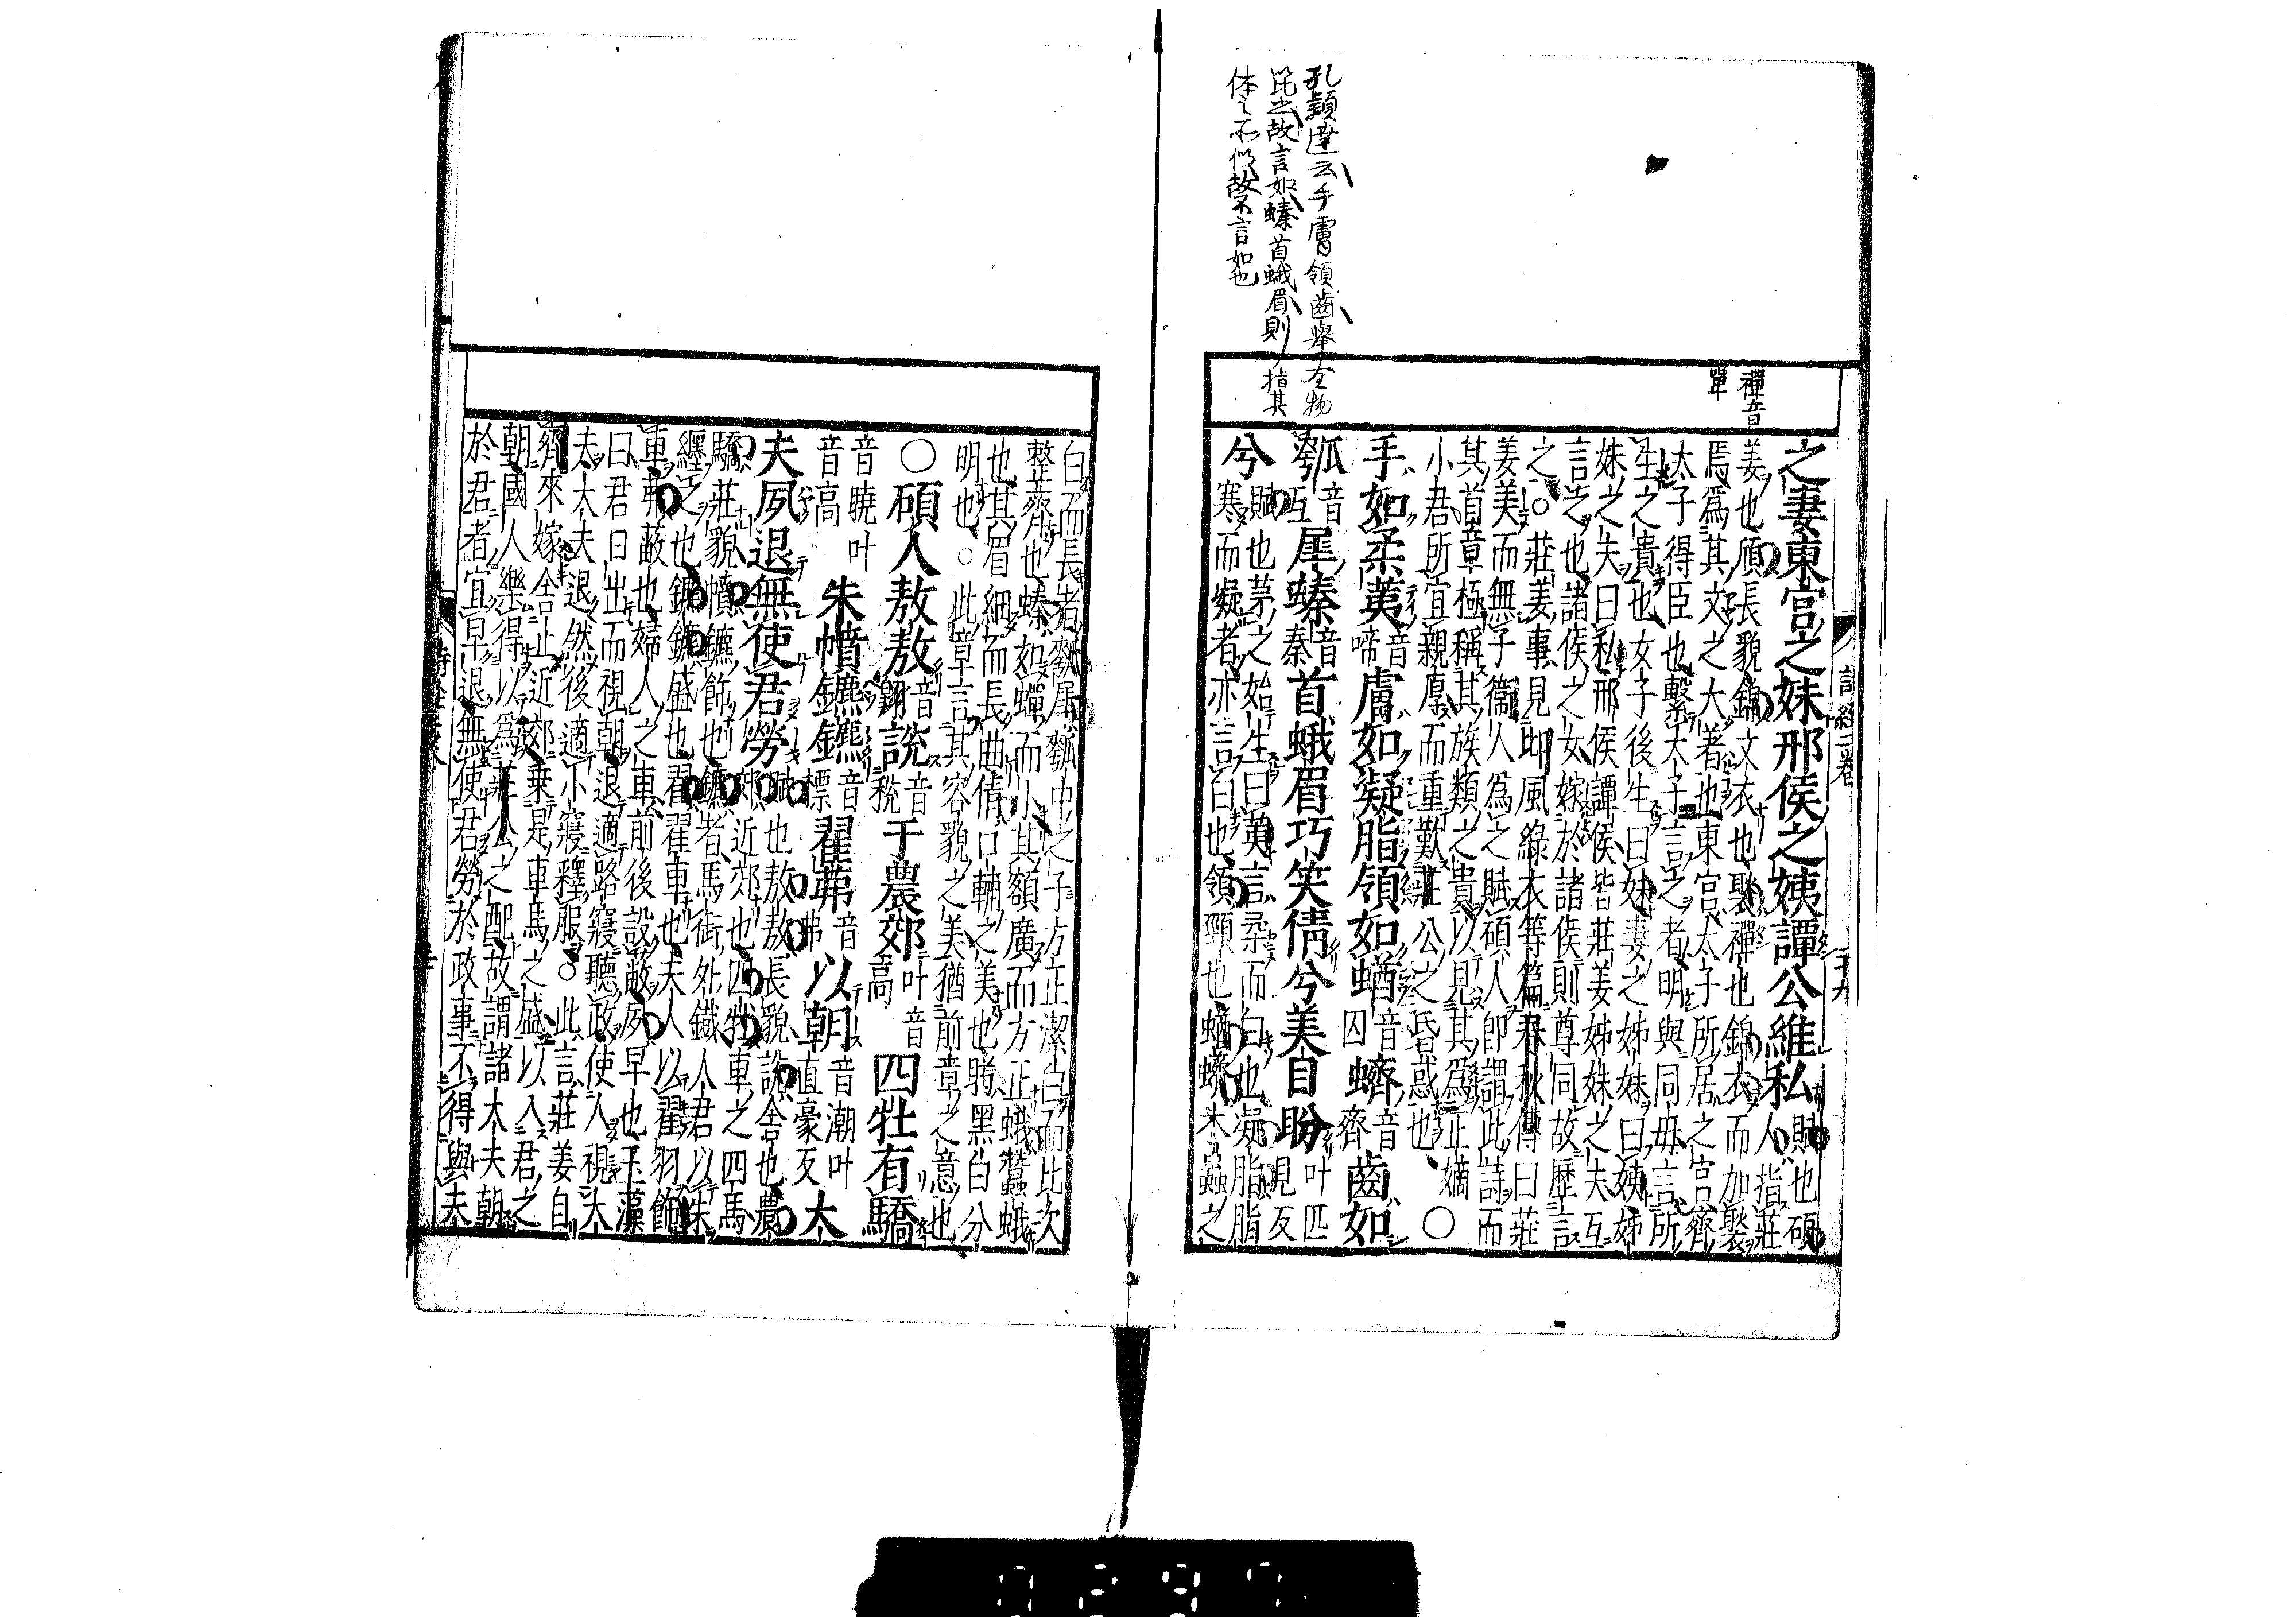 孔頴達云手膚領齒舉全物
比之故言如螓首蛾眉則指其
体之不似故不言如也
襌音
單
詩經二卷
之妻東宮之妹邢侯之姨譚公維私賦也碩人指莊
姜也頎長貌錦文衣也褧襌也錦衣而加褧
焉爲其文之大著也東宮太子所居之宮齊
太子得臣也繫太子言之者明與同母言所
生之貴也女子後生曰妹妻之姊妹曰姨姊
妹之夫曰私邢侯譚侯皆莊姜姊妹之夫互
言之也諸侯之女嫁於諸侯則尊同故歷言
之○莊姜事見邶風綠衣等篇春秋傳曰莊
姜美而無子衞人爲之賦碩人卽謂此詩而
其首章極稱其族類之貴以見其爲正嫡
小君所宜親厚而重歎莊公之昏惑也○
手如柔荑音啼膚如凝脂領如蝤音囚蠐音齊齒如
瓠音互犀螓音秦首蛾眉巧笑倩兮美目盼叶匹見反
兮賦也茅之始生曰荑言柔而白也凝脂脂
寒而凝者亦言白也領頸也蝤蠐木蟲之
白而長者瓠犀瓠中之子方正潔白而比次
整齊也螓如蟬而小其額廣而方正蛾蠶蛾
也其眉細而長曲倩口輔之美也盼黑白分
明也○此章言其容貌之美猶前章之意也
○碩人敖敖音翺說音稅于農郊叶音高四牡有驕
音曉叶音高朱幩鑣鑣音標翟茀音弗以朝音潮叶直豪反大
夫夙退無使君勞賦也敖敖長貌說舍也農郊近郊也四牡車之四馬
驕莊貌幩鑣飾也鑣者馬銜外鐵人君以朱
纏之也鑣鑣盛也翟翟車也夫人以翟羽飾
車茀蔽也婦人之車前後設蔽夙早也玉藻
曰君日出而視朝退適路寢聽政使人視大
夫大夫退然後適小寢釋服○此言莊姜自
齊來嫁舍止近郊乗是車馬之盛以入君之
朝國人樂得以爲莊公之配故謂諸大夫朝
於君者宜早退無使君勞於政事不得與夫